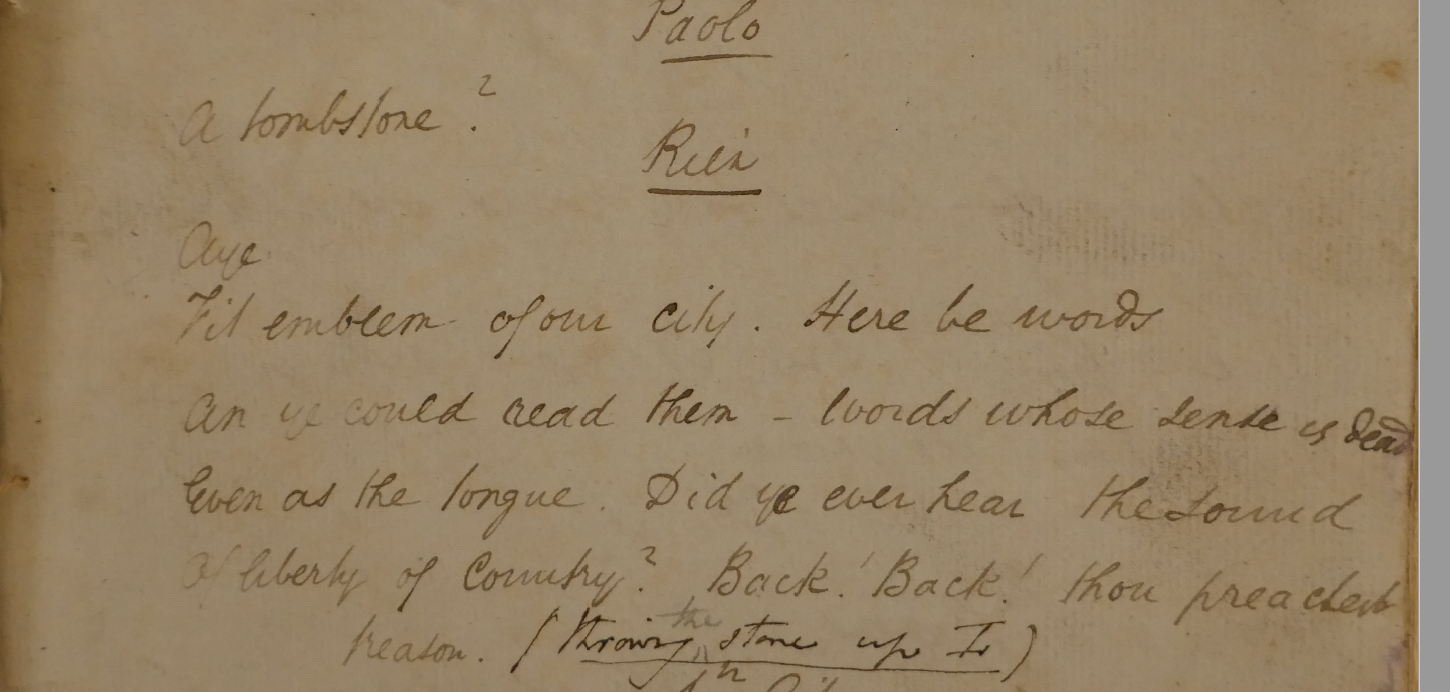 Paolo
A tombstone?
Rien
Aye
Fit emblem of our city. Here be words
An ye could read them - Words whose sense is dead
Even as the tongue. Did ye ever hear the sound
Of liberty of Country? Back! Back! thou preachest
treason. (throwing the stone up